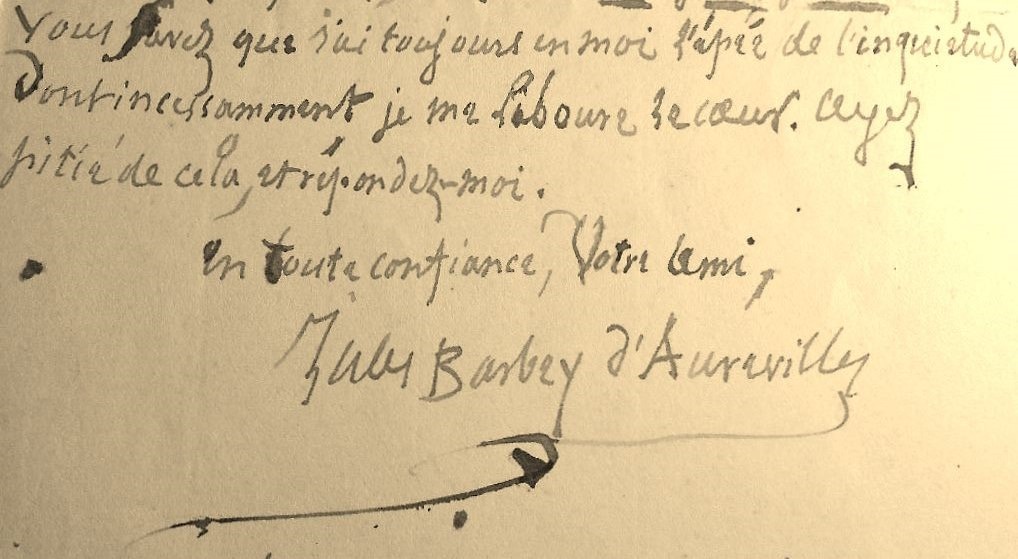 Vous savez que j'ai toujours en moi l'épée de l'inquiétude
Dont incessamment je me laboure le cœur. Ayez
pitié de cela, et répondez-moi.
En toute confiance, Votre Ami,
Jules Barbey d'Aurevilly